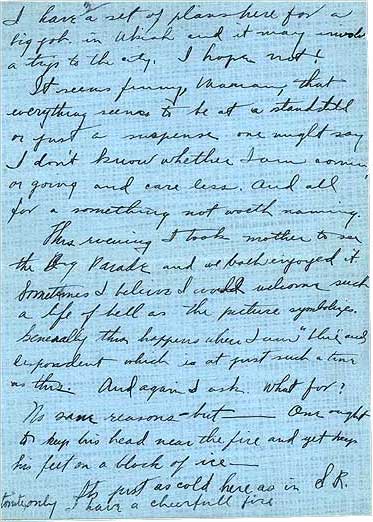 I have a set of plans here for a
big job in Ukiah and it may involve
a trip to the city. I hope not!
It seems funny, Maman, that
everything seems to be at a standstill
or just a suspense one might say
I don't know whether I am comin
or going and care less. And all
for a something not worth naming.
This evening I took mother to see
the Big Parade and we both enjoyed it.
Sometimes I believe I would welcome such
a life of hell as the picture symbolizes.
Generally this happens when I am "blue" and
despondent which is at just such a time
as this. And again I ask. What for?
No sane reasons - but — One ought
to keep his head near the fire and yet keep
his feet on a block of ice —
It's just as cold here as in S.R.
tonite only I have a cheerfull fire